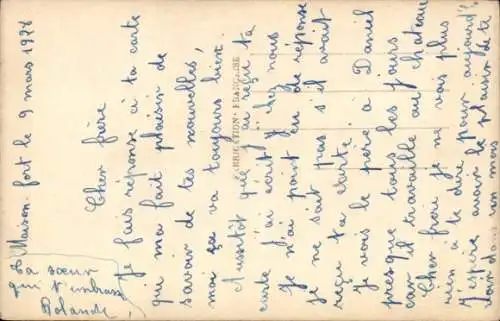 Maison-fort le 9 mars 1928
Cher frère
Je fais réponse à ta carte
qui ma fait plaisir de
savoir de tes nouvelles,
moi ça va toujours bien.
Aussitôt que j'ai reçu ta
carte j'ai écrit chez nous
Je n'ai point eu de réponse
je ne sait pas s'il avait
reçu ta carte.
Je vois le père à Daniel
presque tous les jours
car il travaille au château
Cher frère je ne vois plus
rien à te dire pour aujourd'hui
J'espère avoir le plaisir de te
voir dans un mois
Ta sœur
qui t'embrasse
Rolande,
FABRICATION FRANÇAISE